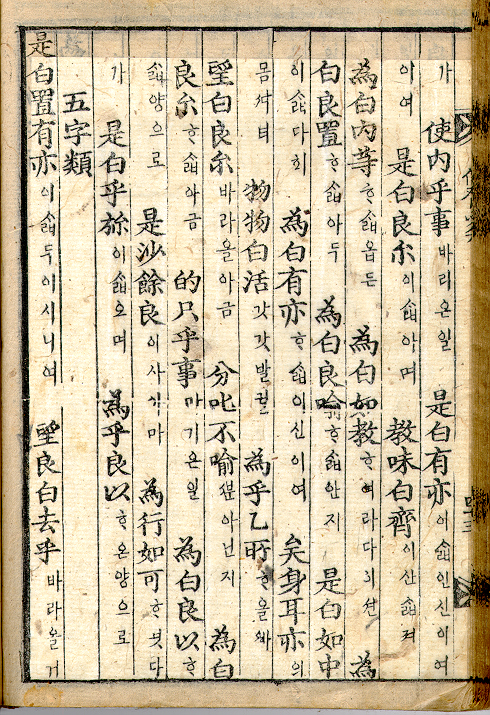 가 使內乎事 바리온일 是白有亦 이ᄉᆞᆲ인신이여
이여 是白良尓 이ᄉᆞᆲ아며 教味白齊 이산ᄉᆞᆲ져
為白內等 ᄒᆞᄉᆞᆲ옵든 為白如教 ᄒᆞ여라다희션 為
白良置 ᄒᆞᄉᆞᆲ아두 為白良喻 ᄒᆞᄉᆞᆲ안지 是白如中
이ᄉᆞᆲ다희 為白有亦 ᄒᆞᄉᆞᆲ이신이여 矣身耳亦 의
몸ᄯᆞ녀 物物白活 갓갓발괄 為乎乙所 ᄒᆞ올
望白良尓 바라올아금 分叱不喻 아닌지 為白
良尓 ᄒᆞᄉᆞᆲ아금 的只乎事 마기온일 為白良以 ᄒᆞ
ᄉᆞᆲ양으로 是沙餘良 이사나마 為行如可 ᄒᆞ녓다
가 是白乎旀 이ᄉᆞᆲ오며 為乎良以 ᄒᆞ온양으로
五字類
是白置有亦 이ᄉᆞᆲ두이시니여 望良白去乎 바라올거